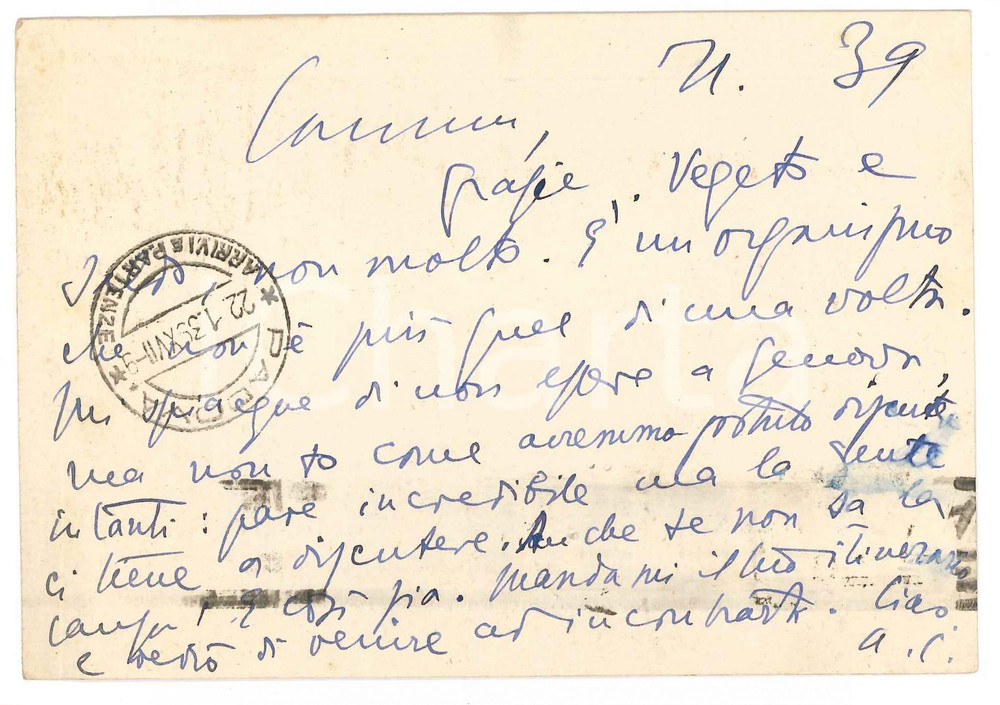 21. 39
Carissimo,
grazie. Vegeto e
, non molto. È un organismo
che non è più quel di una volta.
Mi spiace di non essere a Genova,
ma non so come avremmo potuto discutere
in tanti: pare incredibile ma la gente
ci tiene a discutere. Anche se non sa la
, e così sia. Mandami il tuo itinerario
e vedrò di venire ad incontrarti. Ciao
A. C.
PADOVA
ARRIVI E PARTENZE
22.1.39 XVII-9
Charta